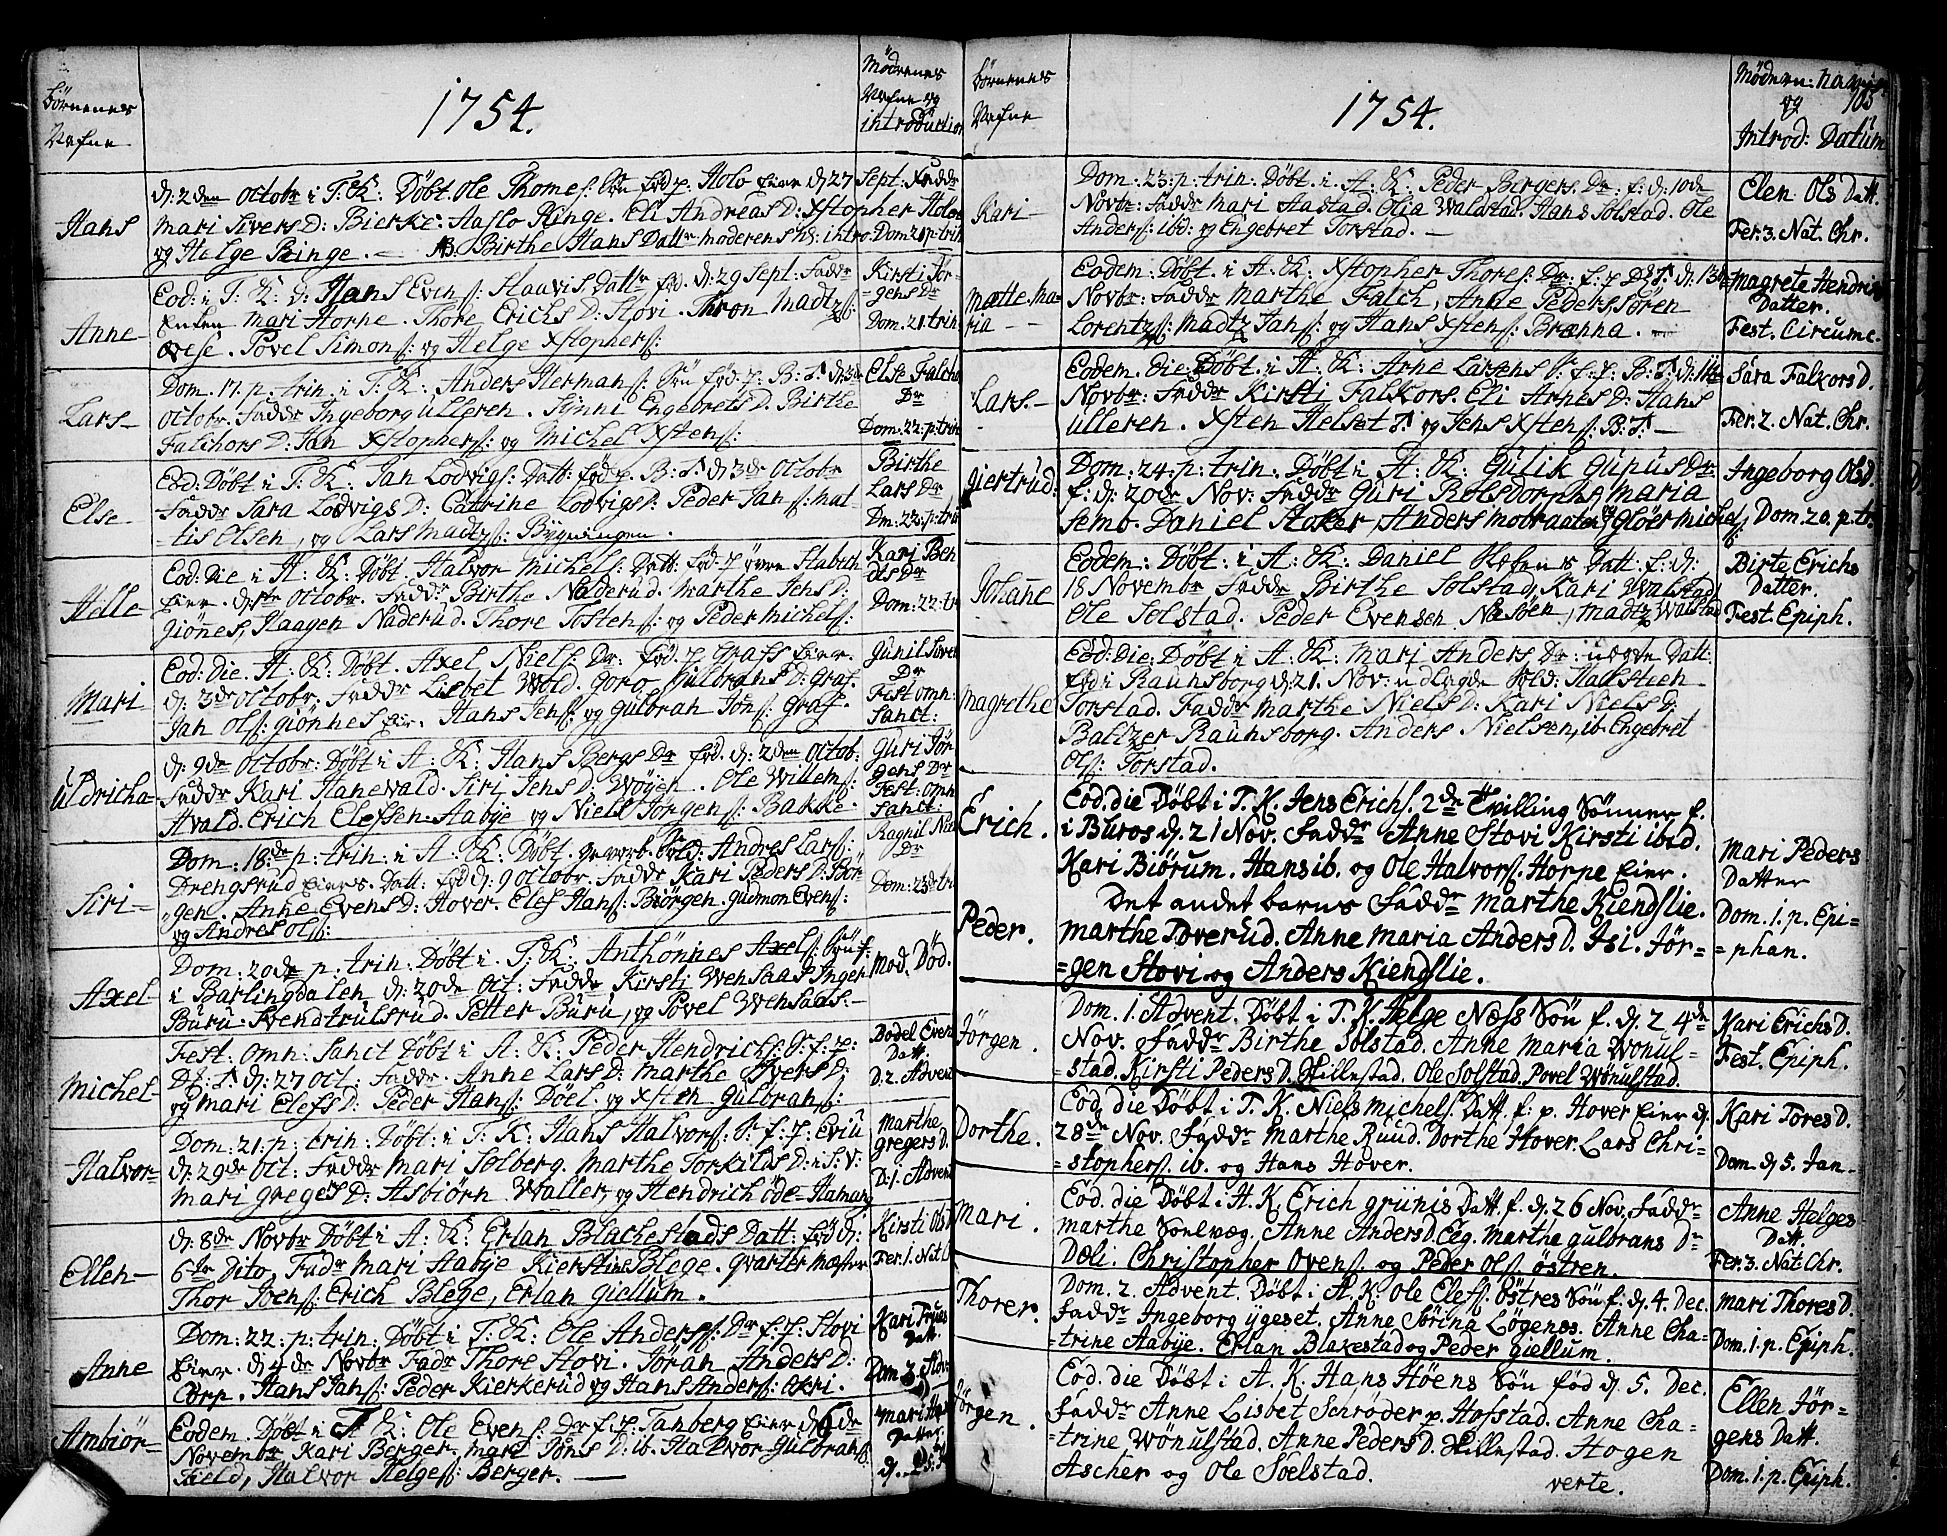 Börnenes
Nafne
1754.
Mödrenes
Nafne og
introduction
Hans
d. 2den Octobr i T: K: Döbt Ole Thomes: Sön fød p. Holo Eier d. 27 Sept. Faddr
Mari Sivers D: Bierke: Aaslo Ringe. Eli Andreas D: Xstopher Holo
og Helge Ringe. — NB. Birthe Hans Dattr Moderens intro: Dom: 20 p: trin
Anne
Eod: i T: K: D: Hans Evins: Haavis Dattr fød. d. 29 Sept: Faddr
Enken Mari Horne. Thore Erichs D: Stovi. Thron Madtzs:
Povel Simons: og Helge Xstophers:
Kirsti Jör-
gens Dr
Dom. 21 trin
Lars
Dom. 17. p. trin. i T: K: Anders Hermans: Sön fød. p. B: F: d: 3de
Octobr. Faddr Ingeborg Ulleren. Synni Engebrets D. Birthe
Falchors D: Jan Xstophers: og Michel Xstens:
Else Falchs
Dr
Dom. 22. p: trin
Else
Eod: Döbt i T: K: Jan Lodvigs: Datt: fød p. B: F. d: 3de Octobr
Faddr Sara Lodvigs D: Catrine Lodvigs: Peder Jans: Mat
-tis Olsen, og Lars Madtzs: Bygningen.
Birthe
Lars Dr
Dm: 22: p: trin
Helle
Eod: Die i A: K: Döbt. Halvor Michels: Datt fød. p övre Stabech
Eier. d. 1ste Octobr. Faddr Birthe Naderud. Marthe Jens D:
Giönes, Haagen Naderud. Thore Tostens: og Peder Michels:
Kari Ben
dts Dr
Dom: 22: tr
Mari
Eod: Die. A: K: Döbt. Axel Niels: Dr. fød. p Grafs Eier.
d. 3de Octobr. Faddr Lisbet Wold. Goro Gulbrans D: Graf.
Jan Ols: Giönnes Eir. Hans Jens: og Gulbran Jöns: Graf.
Gunil Siver
Dr
Fest omn:
Sanct:
Uldricha
d. 9de Octobr: Döbt i A: K: Hans Bergs Dr fød. d. 2den Octob:
Faddr Kari Hanevald. Siri Jens D: Wöyen. Ole Willems:
Hvald. Erich Elefsen Aabye og Niels Jörgens: Bakke.
Guri Jör
gens Dr
Fest: omn
Sanct:
Siri
Dom: 18de p: trin: i A: K: Döbt. gevorb. Sold: Andres Lars:
Drengsrud Eiers. Datt: fød d: 9 Octobr. Faddr Kari Peders D: Bör
gen. Anne Evens D: Hover. Elef Hans: Biörgen. Gudmon Evens:
og Andres Ols:
Ragnil Niels
Dr
Dom: 23de trin
Axel
Dom: 20de p. trin. Döbt i T: K: Anthönnes Axels: Sön f.
i Barlingdalen d: 20de Oct: Faddr Kirsti Wensaas Inger
Buru: Svend trulsrud. Petter Buru, og Povel Wensaas.
Mod. Död.
Michel
Fest: omn: Sanct Döbt i A: K: Peder Hendrichs: S: f: p:
F. d: 27 Oct: Faddr. Anne Lars D: Marthe Sivers D:
og Mari Elefs D: Peder Hans: Döel. og Xsten Gulbrans:
Bodel Even
Datt.
D: 2. Advent
Halvor
Dom: 21. p: trin: Döbt: i T: K: Hans Halvors: S: f: p: Eviu
d: 29de Oct: Faddr Mari Solberg. Marthe Torkilds D: i S: V:
Mari Greges D: Asbiörn Waller, og Hendrich öde-Hamang
Marthe
Gregers D.
D: 1. Advent
Ellen
d: 8de Novbr Döbt i A: K: Erlan Blachestads Datt: fød d:
6te Dito. Fadr Mari Aabye Kierstine Blege. Qvartermæster
Thor Joens: Erich Blege, Erlan Giellum.
Kirsti Ols D
Fer: 1. Nat C
Anne
Dom: 22: p: trin: Döbt i T: K: Ole Anderss: Dr f: p: Stovi
Eier. d: 4de Novbr Fadr Thore Stovi. Jöran Anders D:
Corp. Hans Jans: Peder Kierkerud og Hans Anders: Ekri.
Kari Truls
Datt.
Dom 3. Adv
Ambiör
Eodem. Döbt i T: K: Ole Evens: Dr f: p. Tanberg Eier d: 6de
Novembr. Kari Berger. Mari Jöns D: ib. Halvor Gulbrans:
Field, Halvor Helges: Berger.
Mari
Datter
Börnenes
Nafne
1754.
Mödren: navne
og
Introd: Datum
105
Kari
Dom: 23: p: trin. Döbt. i A: K: Peder Birgers. Dr: f: d: 10de
Novbr: Faddr Mari Aastad. Olia Walstad. Hans Solstad. Ole
Anders: ibd: og Engebret Torstad. —
Elen Ols Datt.
Fer: 3. Nat. Chr.
Mætte Ma-
ria
Eodem: Döbt. i A: K: Xstopher Thores: Dr: f: p. d: 13de
Novbr: Faddr Marthe Falch, Anne Peders Sören
Lorentzs: Madtz Jans: og Hans Xstens: Brænna.
Magrete Hendrix
Datter.
Fest. Circumc.
Lars
Eodem. Die Döbt. i A: K: Arne Larsens S. f: p: B: F. d: 11te
Novbr: Faddr Kirsti Falkors. Eli Arnes D: Hans
Ulleren. Xsten Helset og Jens Xstens: B: F.
Sara Falkors D.
Fer. 2. Nat. Chr.
Giertrud
Dom: 24: p: trin. Döbt i A: K: Gulik Gupus Dr
f. d. 20de Nov: Faddr Guri Rolsdorph, Maria
Semb. Daniel Staker, Anders Mobraaten og Glöer Michels:
Ingeborg Ols D.
Dom: 20. p. tr.
Johane
Eodem: Döbt: i A: K: Daniel Datt. f: d:
18 Novembr Faddr Birthe Solstad, Kari Walstad,
Ole Solstad. Peder Evensen Næsöen, Madtz Walstad
Birte Erichs
Datter.
Fest. Epiph.
Magrethe
Eod: Die: Döbt i A: K: Mari Anders Dr: uægte Datt:
fød i Raunsborg d. 21. Nov: udlagde Sold: Halsteen
Torstad. Faddr Marthe Niels D: Kari Niels D:
Baltzer Raunsborg. Anders Nielsen, ib. Engebret
Ols: Torstad.
Erich.
Eod. die Döbt i T. K. Jens Erichs. 2de Tvilling Sönner f.
i Buros d. 21 Nov. Faddr Anne Stovi Kirsti ibid.
Kari Biörum. Hans ib. og Ole Halvors. Horne Eier.
Peder.
Det andet barns Faddr Marthe Kiendslie.
Marthe Toverud. Anne Maria Anders D. Isi. Jör-
=gen Stovi og Anders Kiendslie.
Mari Peders
Datter
Dom. 1. p. Epi-
=phan.
Jörgen.
Dom. 1. Advent. Döbt i T. K. Helge Næss Sön f. d. 24de
Nov. Faddr Birthe Solstad. Anne Maria Wonul-
=stad. Kirsti Peders D. Hillestad. Ole Solstad. Povel Wönulstad.
Kari Erichs D.
Fest. Epiph.
Dorthe.
Eod. die Döbt i T. K. Niels Michels. Datt. f. p. Hover Eier d.
28de Nov. Faddr Marthe Ruud. Dorthe Hover. Lars Chri-
=stophers. ib. og Hans Hover.
Kari Tores D.
Dom. d. 5. Jan.
Mari.
Eod. die Döbt i A. K. Erich Grünis Datt. f. d. 26 Nov. Faddr
Marthe Sonlvæg. Anne Anders D. Eeg. Marthe Gulbrans Dr
Dæli. Christopher Ovens. og Peder Ols. östren.
Anne Helges
Datt.
Fer. 3. Nat: Chr.
Thorer.
Dom. 2. Advent. Döbt i A. K. Ole Elefs. östres Sön f. d. 4. Dec.
Faddr Ingeborg Ygeset. Anne Sörina Lögenæs. Anne Cha-
=trine Aabye. Erlan Blakestad og Peder Giellum.
Mari Thores D.
Dom. 1. p. Epiph.
Jörgen.
Eod. die Döbt i A. K. Hans Höens Sön fød d. 5. Dec.
Faddr Anne Lisbet Schröder p. Hofstad. Anne Cha-
=trine Wönulstad. Anne Peders D. Hillestad. Hogen
Ascher og Ole Solstad.
Ellen Jör-
gens Datt.
Dom. 1. p. Epiph.
verte.